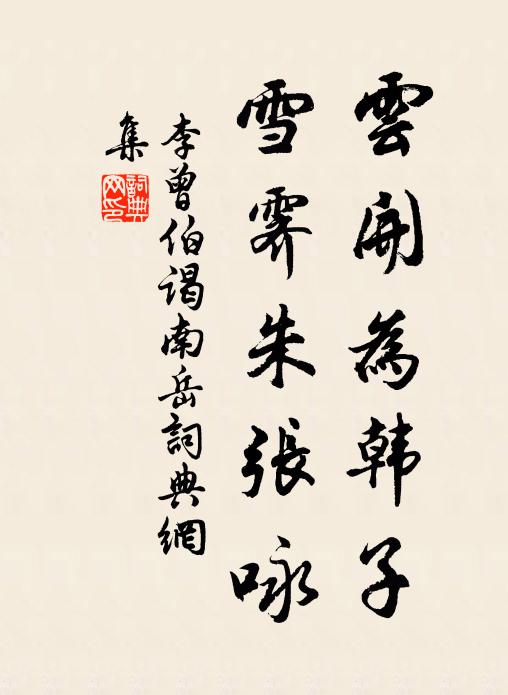 雲開為韩子
雪霽朱張咏
李曾伯謁南岳詞典網
集
詞典網印